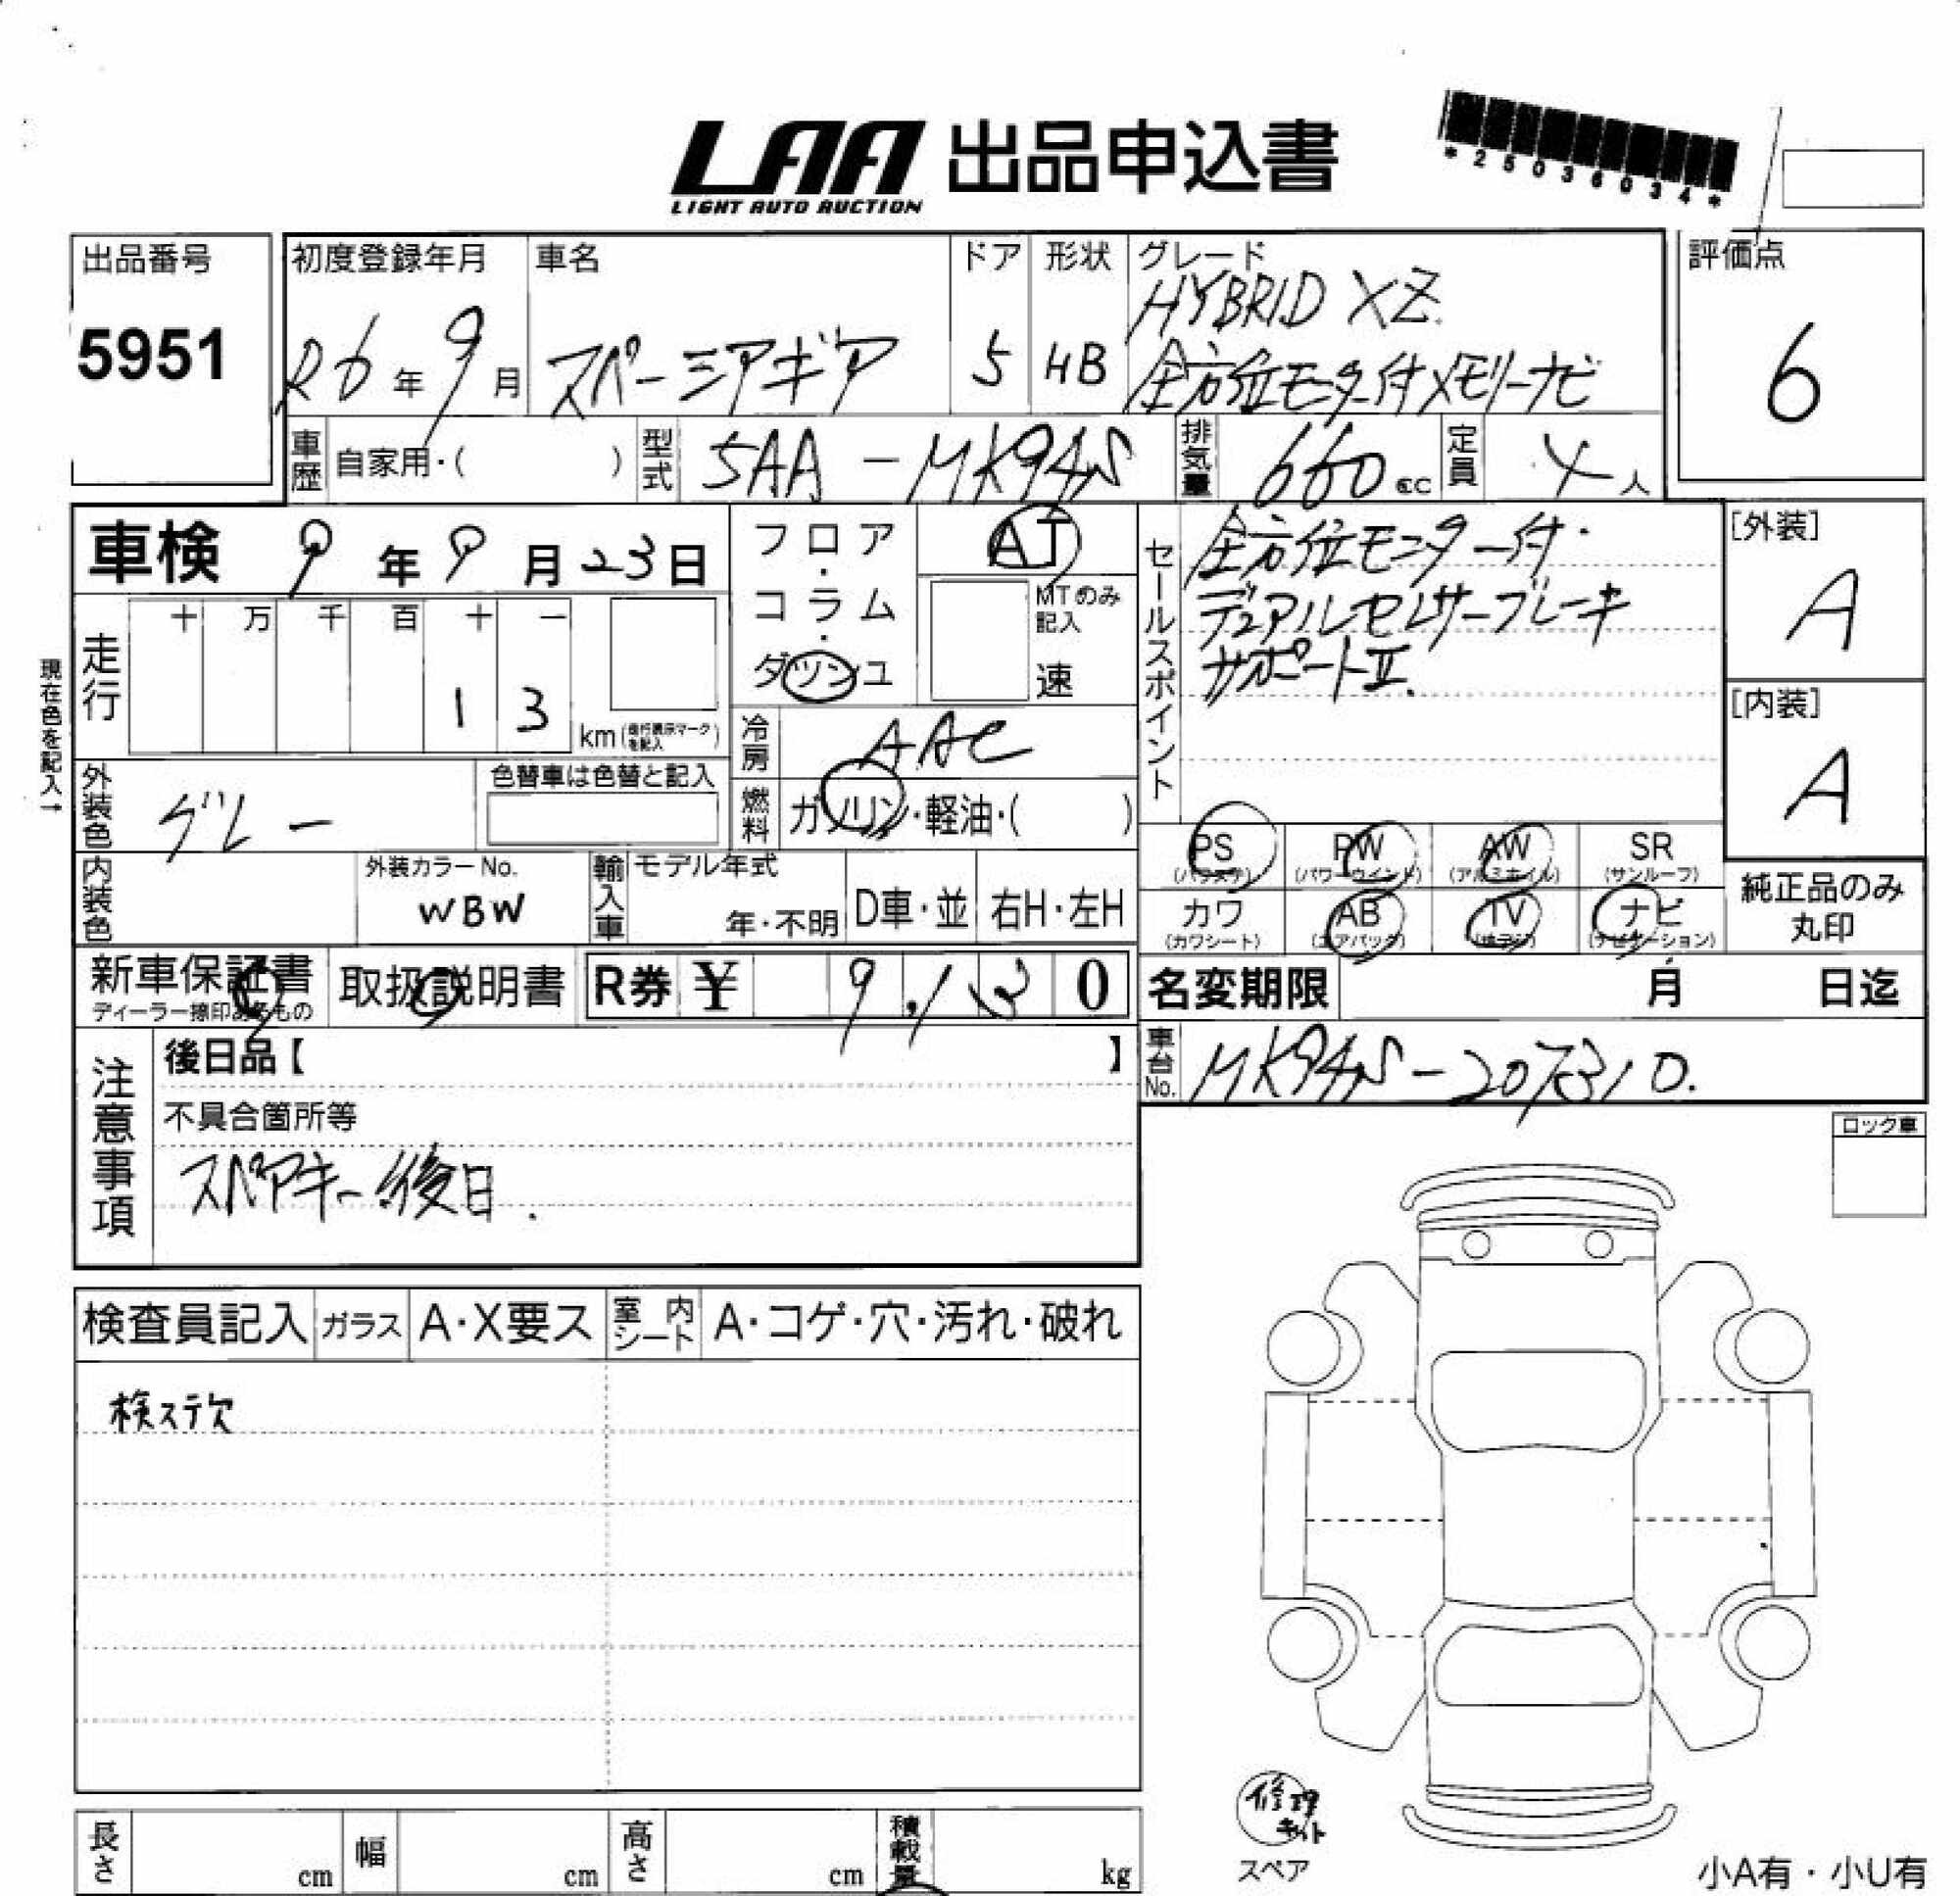 LAA 出品申込書
LIGHT AUTO AUCTION
*25036034*
出品番号
5951
初度登録年月
R6年9月
車名
スペーシアギア
ドア
5
形状
HB
グレード
HYBRID XZ
全方位モニター付メモリーナビ
評価点
6
車歴 自家用・( )
型式 5AA-MK94S
排気量 660cc
定員 4人
車検 9年9月23日
走行 十 万 千 百 十 一
1 3 km
現在色を記入→
フロア・コラム・ダッシュ
AT
MTのみ記入
速
冷房 AAC
燃料 ガソリン・軽油・( )
セールスポイント
全方位モニター付・
デュアルセンサーブレーキ
サポートⅡ.
[外装]
A
[内装]
A
外装色 グレー
色替車は色替と記入
内装色
外装カラーNo.
WBW
輸入車
モデル年式
年・不明
D車・並
右H・左H
PS
(パワステ)
PW
(パワーウインド)
AW
(アルミホイル)
SR
(サンルーフ)
カワ
(カワシート)
AB
(エアバッグ)
TV
(地デジ)
ナビ
(ナビゲーション)
純正品のみ
丸印
新車保証書
ディーラー捺印あるもの
取扱説明書
R券 ¥ 9,130
名変期限 月 日迄
車台No. MK94S-207310.
注意事項
後日品【 】
不具合箇所等
スペアキー後日.
ロック車
検査員記入
ガラス A・X要ス
室内シート A・コゲ・穴・汚れ・破れ
検ステ欠
修理キット
スペア
長さ cm
幅 cm
高さ cm
積載量 kg
小A有・小U有